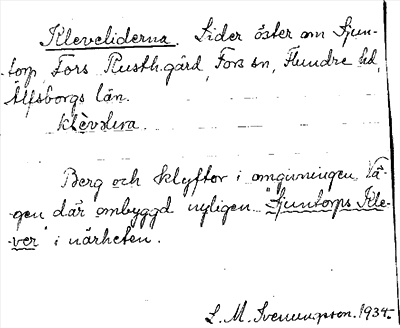 Kleveliderna. Lider öster om Sjun-
torp, Fors Rusth.gård, Fors sn, Flundre hd,
Älfsborgs län.
klèvəlıra.
Berg och klyftor i omgivningen. Vä-
gen där ombyggd nyligen. "Sjuntorps Kle-
ver" i närheten.
L. M. Svenungsson. 1934.